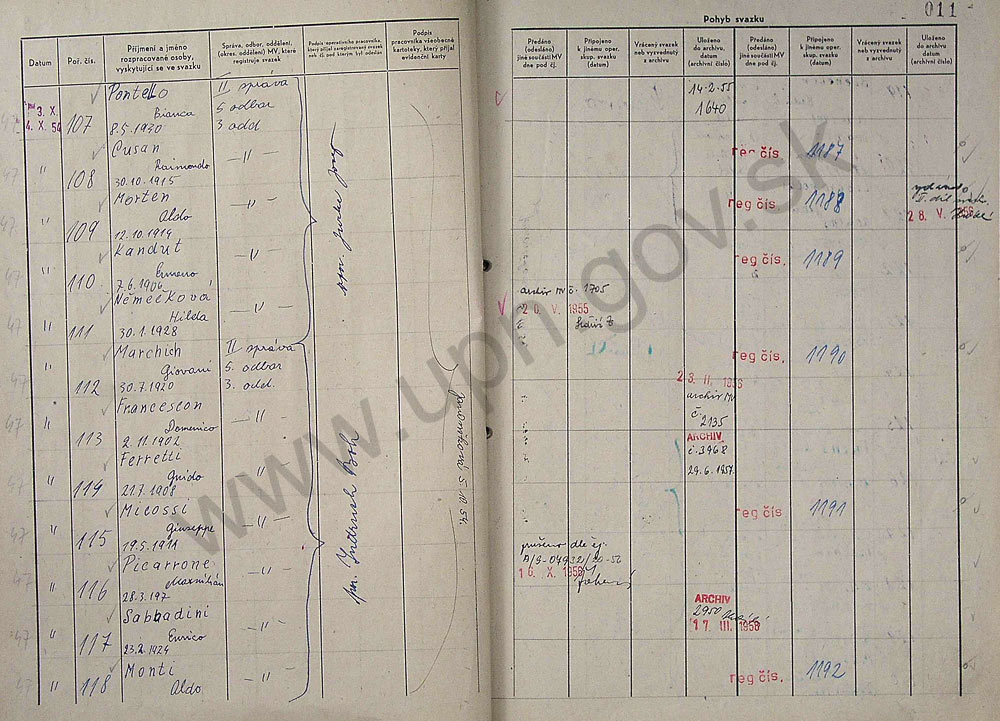 011
Pohyb svazku
Datum
Poř. čís.
Příjmení a jméno
rozpracované osoby,
vyskytující se ve svazku
Správa, odbor, oddělení,
(okres. oddělení) MV, které
registruje svazek
Podpis operativního pracovníka,
který přijal zaregistrovaný svazek
Podpis
pracovníka všeobecné
kartoteky, který přijal
evidenční karty
Předáno
(odesláno)
jiné součásti MV
dne pod čj.
Připojeno
k jinému oper.
skup. svazku
(datum)
Vrácený svazek
neb vyzvednutý
z archivu
Uloženo
do archivu,
datum
(archivní číslo)
Předáno
(odesláno)
jiné součásti MV
dne pod čj.
Připojeno
k jinému oper.
skup. svazku
(datum)
Vrácený svazek
neb vyzvednutý
z archivu
Uloženo
do archivu
datum
(archivní číslo)
3. X.
4. X. 54
107
Pontello
Bianca
8.5.1930
II správa
5 odbor
3 odd
14.2.55
1640
" 108
Cusan
Raimondo
30.10.1915
— " —
reg čís. 1187
" 109
Morten
Aldo
12.10.1914
— " —
reg čís. 1188
28. V. 1956
" 110
Kandut
Ermeno
7.6.1906
— " —
reg čís. 1189
" 111
Němečková
Hilda
30.1.1928
— " —
archiv MV č. 1705
20. V. 1955
" 112
Marchich
Giovani
30.7.1920
II správa
5. odbor
3. odd.
reg čís. 1190
" 113
Francescon
Domenico
2.11.1902
— " —
archiv MV
č.
2135
" 114
Ferretti
Guido
21.7.1908
— " —
ARCHIV
č. 3968
29.6.1957
" 115
Micossi
Giuseppe
19.5.1911
— " —
reg čís 1191
" 116
Picarrone
Maxmilián
28.3.197
— " —
16. X. 1956
" 117
Sabbadini
Enrico
23.2.1924
— " —
ARCHIV
2950
17. III. 1958
" 118
Monti
Aldo
— " —
reg čís. 1192
5. 10. 54.
www.upn.gov.sk